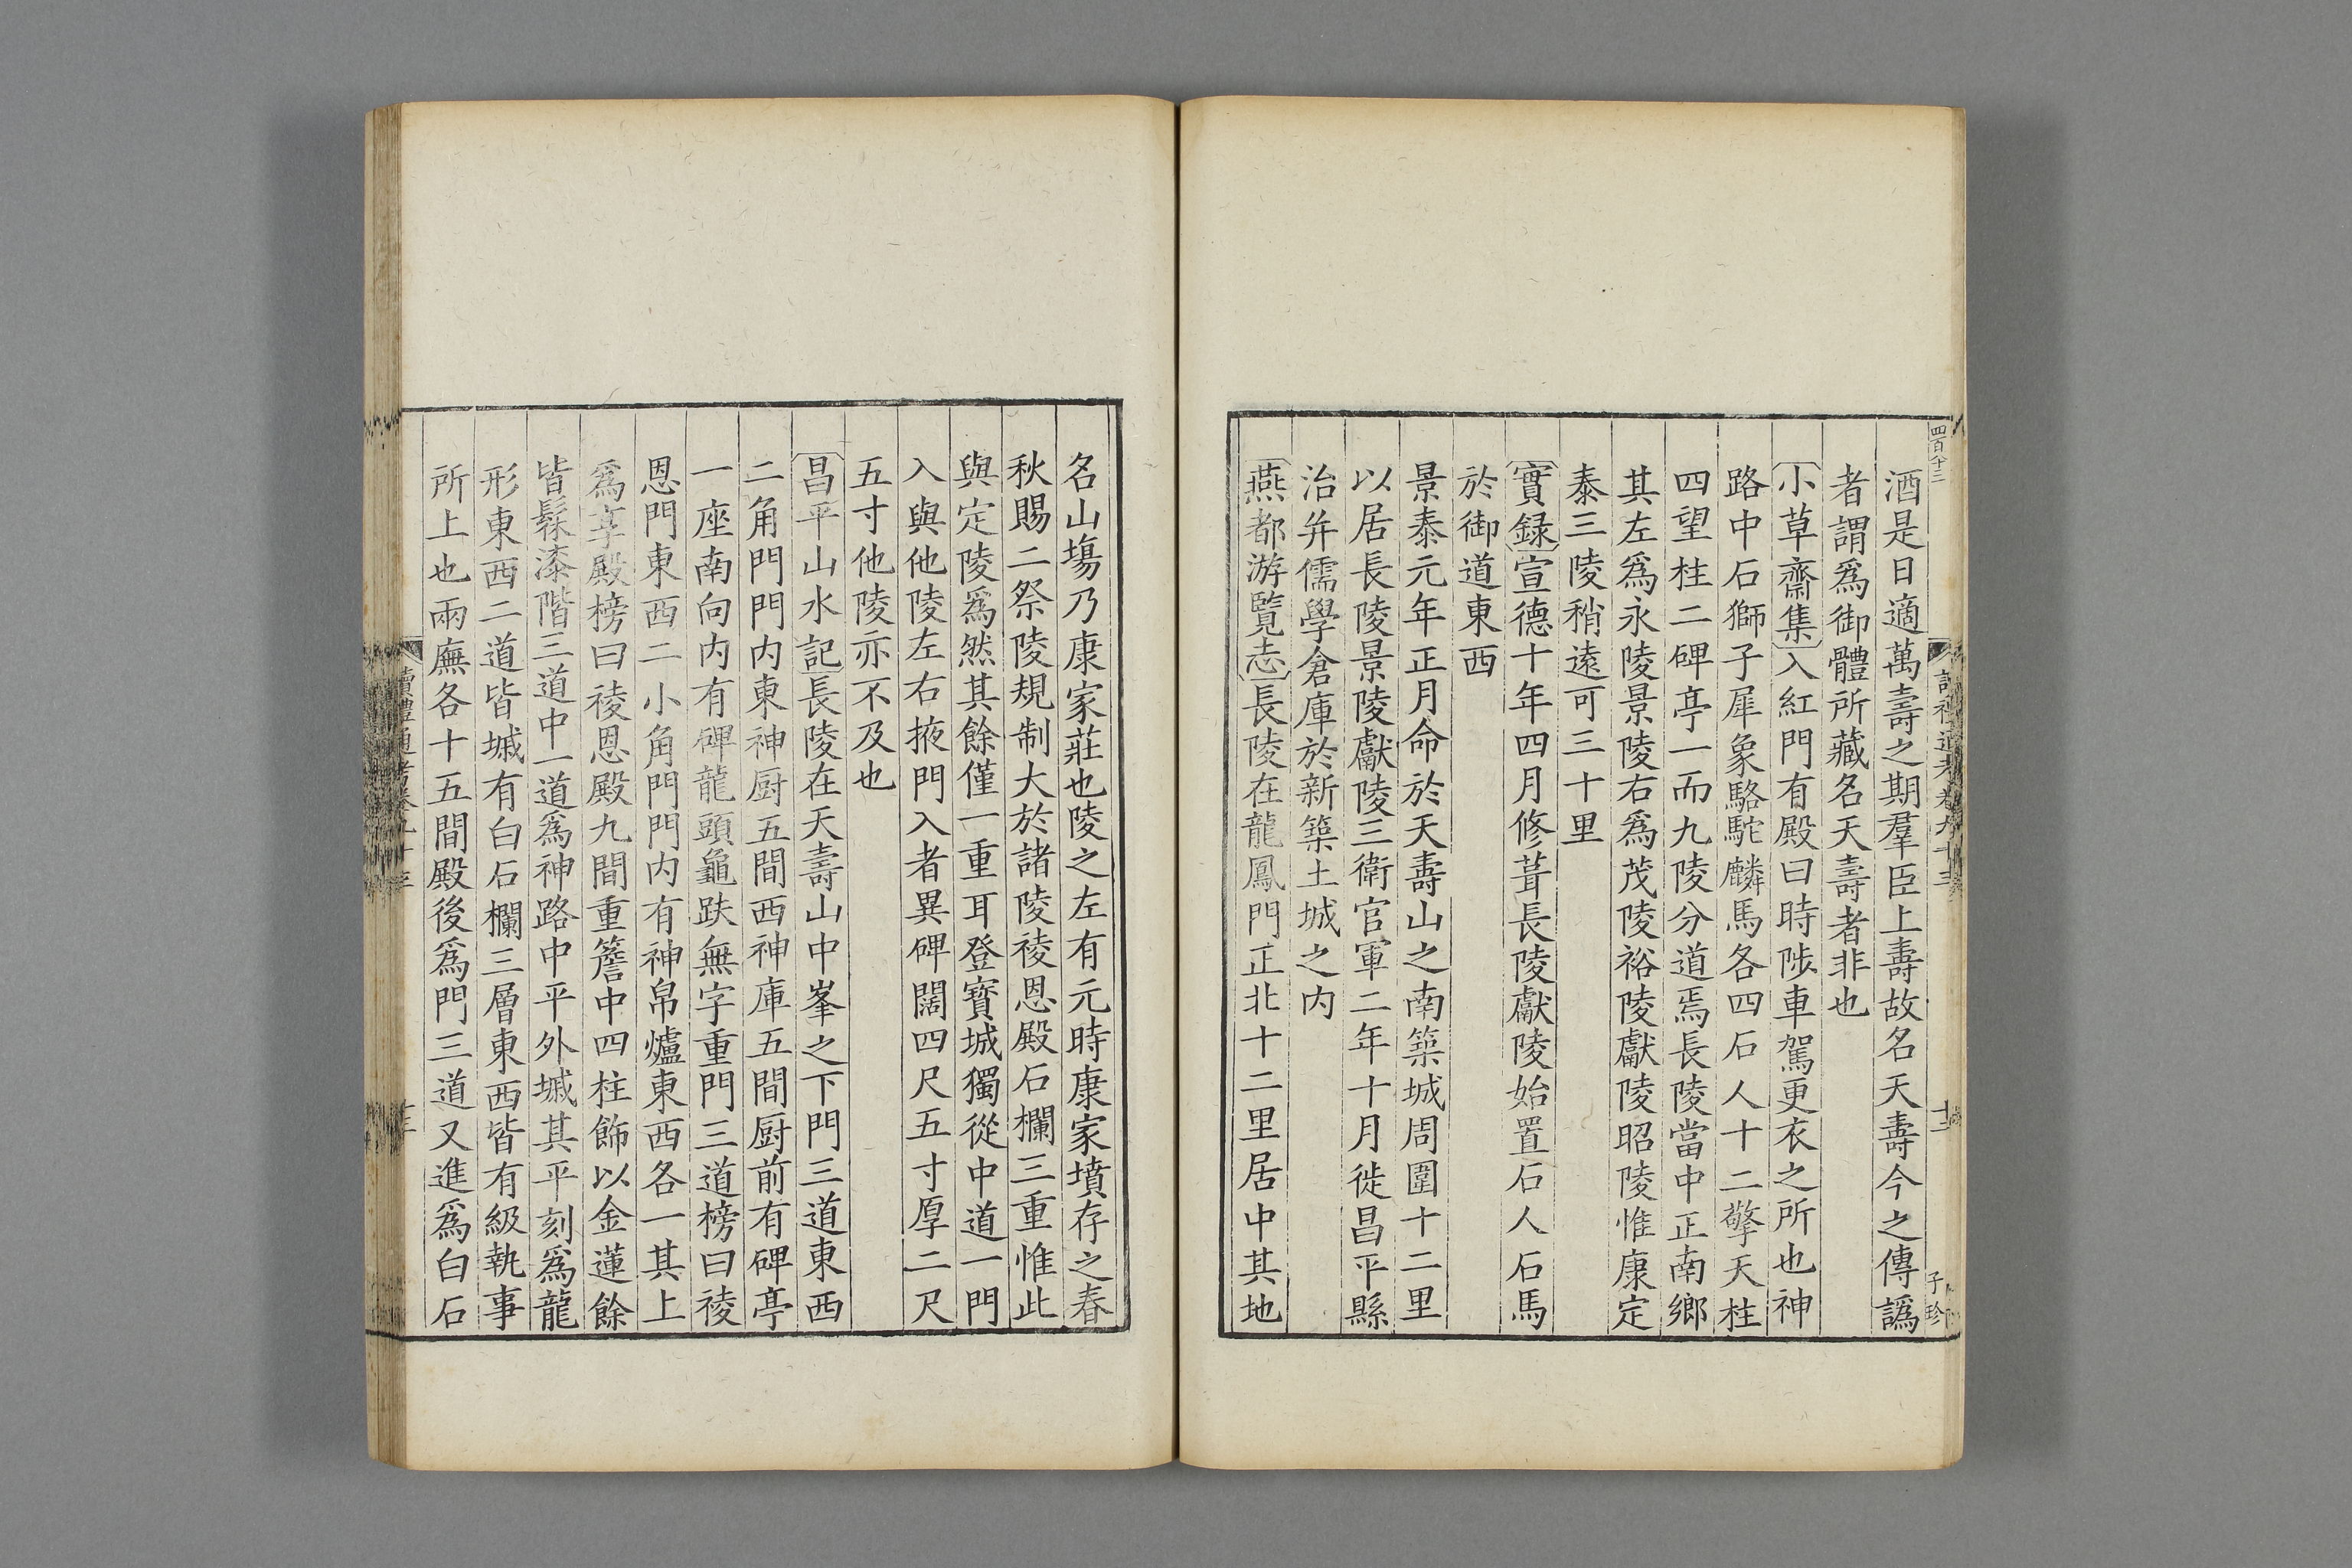 四百十三
酒是日適萬壽之期羣臣上壽故名天壽今之傳譌
者謂爲御體所藏名天壽者非也
小草齋集入紅門有殿曰時陟車駕更衣之所也神
路中石獅子犀象駱駝麟馬各四石人十二擎天柱
四望柱二碑亭一而九陵分道焉長陵當中正南鄉
其左爲永陵景陵右爲茂陵裕陵獻陵昭陵惟康定
泰三陵稍遠可三十里
實録宣德十年四月修葺長陵獻陵始置石人石馬
於御道東西
景泰元年正月命於天壽山之南築城周圍十二里
以居長陵景陵獻陵三衛官軍二年十月徙昌平縣
治并儒學倉庫於新築土城之内
燕都游覧志長陵在龍鳳門正北十二里居中其地
名山塲乃康家莊也陵之左有元時康家墳存之春
秋賜二祭陵規制大於諸陵祾恩殿石欄三重惟此
與定陵爲然其餘僅一重耳登寶城獨從中道一門
入與他陵左右掖門入者異碑闊四尺五寸厚二尺
五寸他陵亦不及也
昌平山水記長陵在天壽山中峯之下門三道東西
二角門門内東神厨五間西神庫五間厨前有碑亭
一座南向内有碑龍頭龜趺無字重門三道榜曰祾
恩門東西二小角門門内有神帛爐東西各一其上
爲享殿榜曰祾恩殿九間重簷中四柱飾以金蓮餘
皆髹漆階三道中一道爲神路中平外墄其平刻爲龍
形東西二道皆墄有白石欄三層東西皆有級執事
所上也兩廡各十五間殿後爲門三道又進爲白石